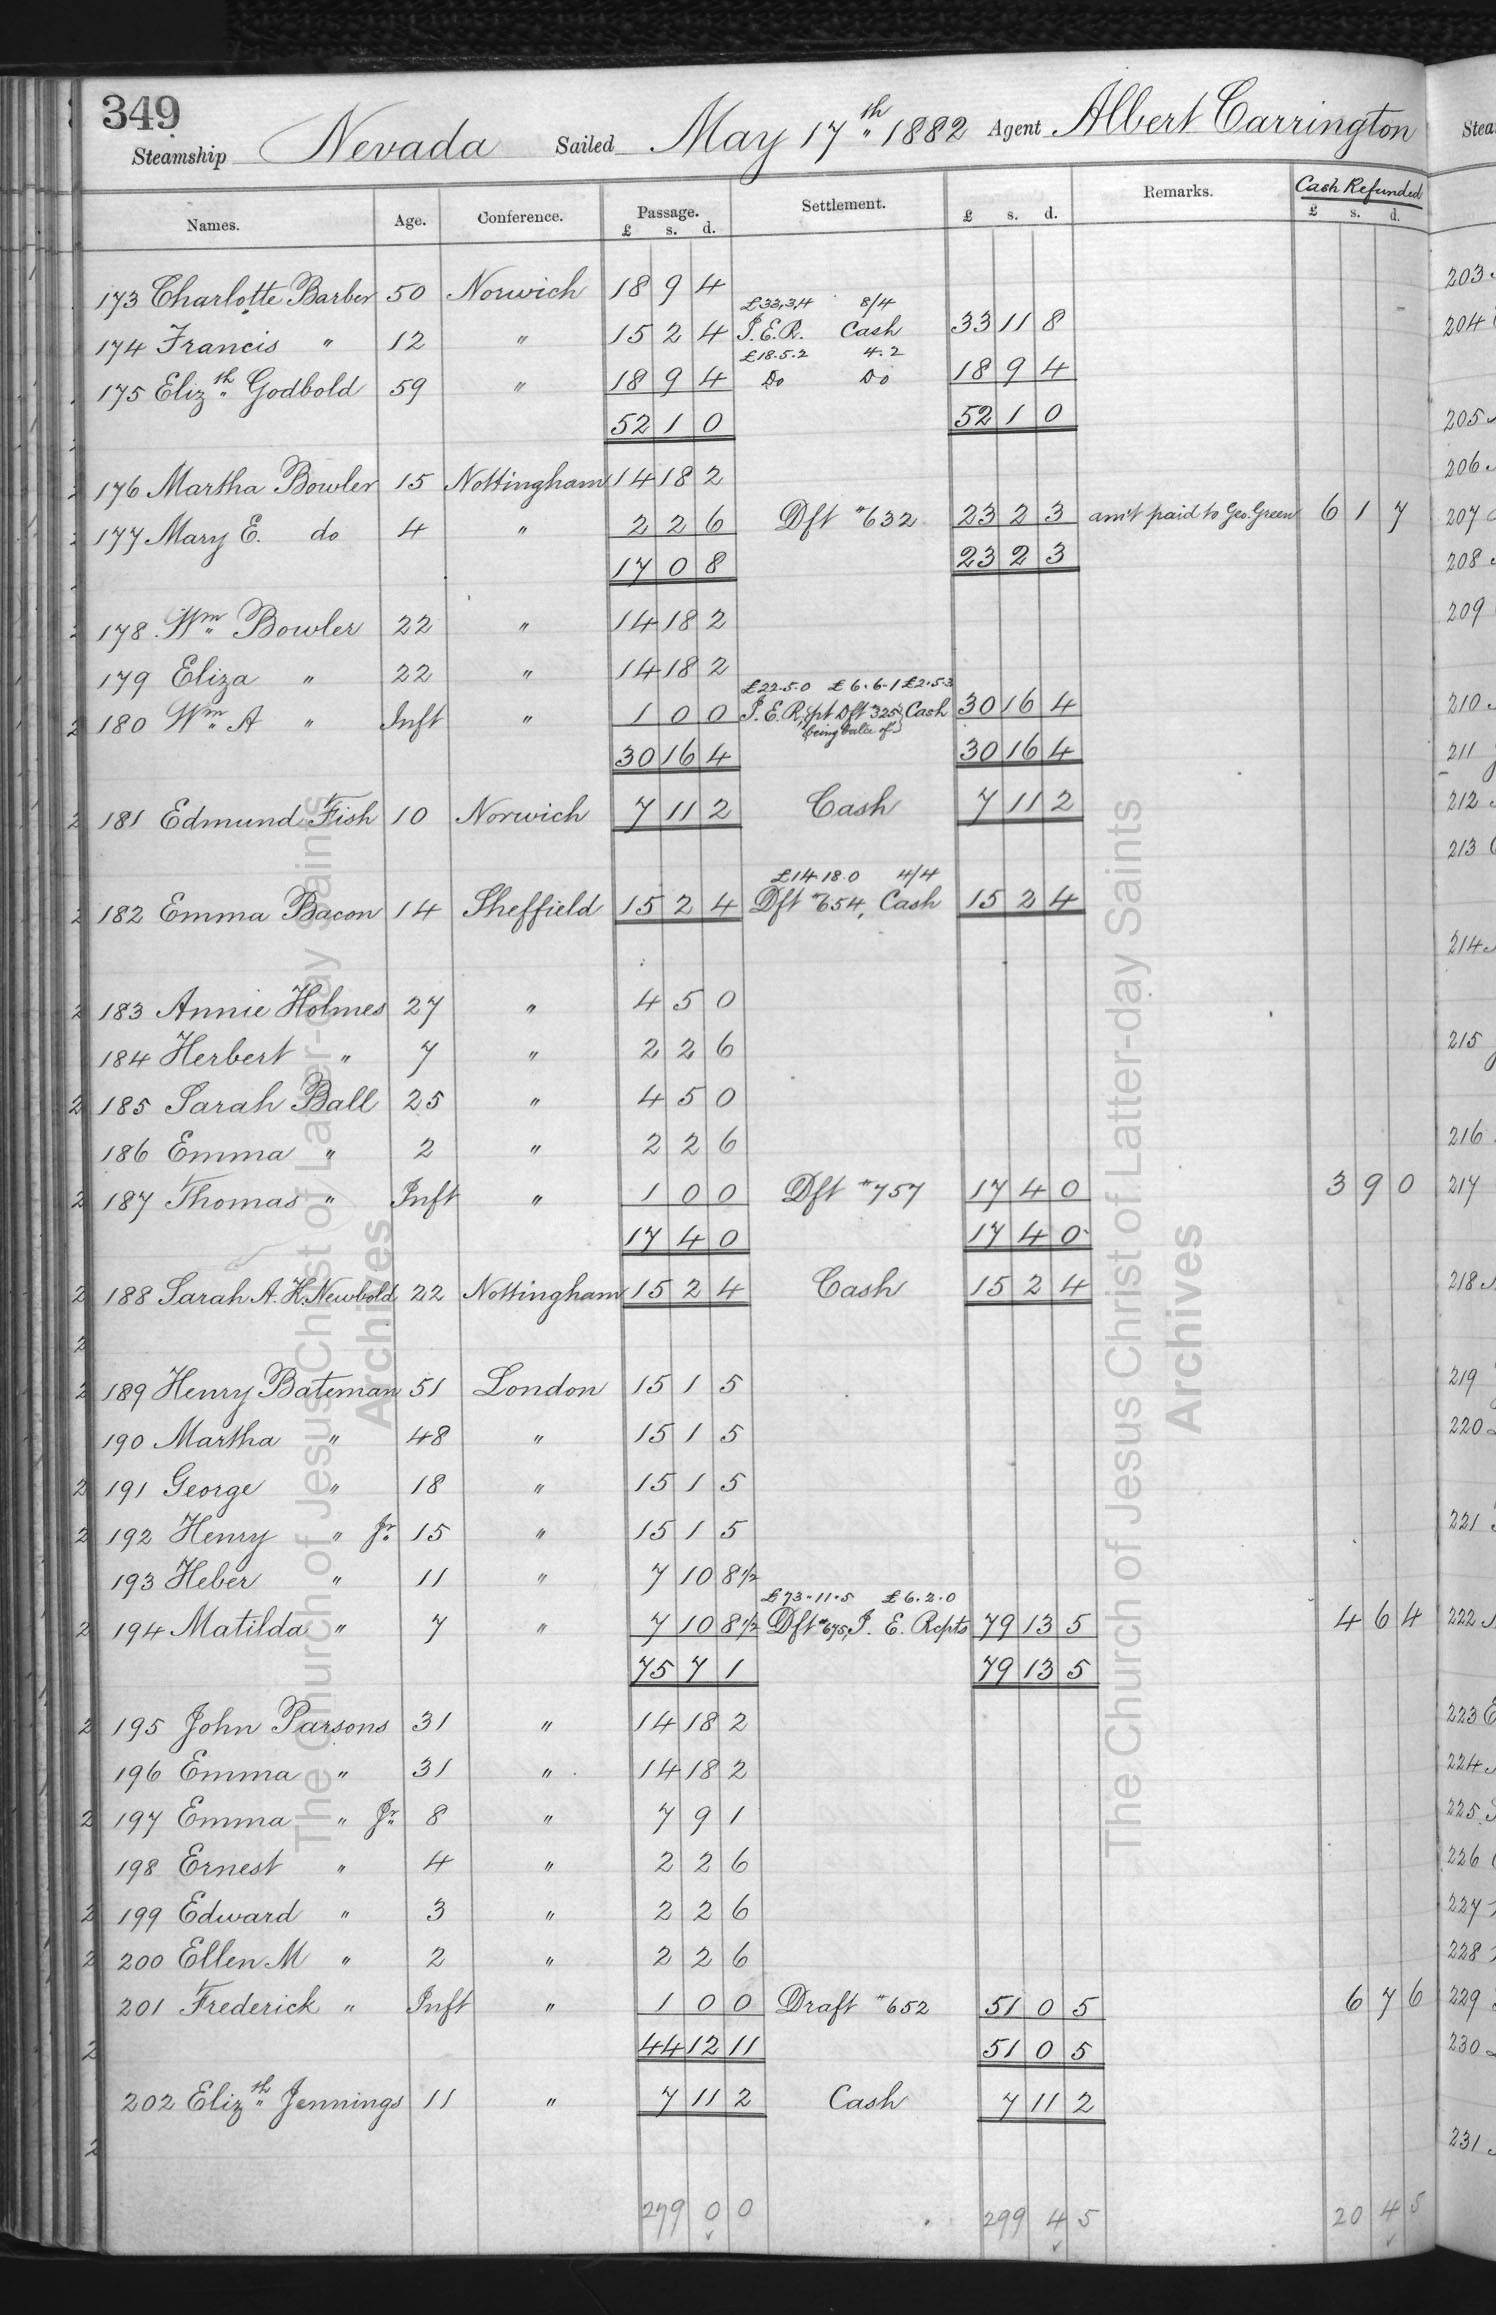 349
Steamship Nevada Sailed May 17th 1882 Agent Albert Carrington
Names. Age. Conference. Passage. £ s. d. Settlement. £ s. d. Remarks. Cash Refunded £ s. d.
173 Charlotte Barber 50 Norwich 18 9 4
£33,3,4 8/4
174 Francis " 12 " 15 2 4 I.E.R. Cash 33 11 8
£18.5.2 4.2
175 Elizth Godbold 59 " 18 9 4 Do Do 18 9 4
52 1 0 52 1 0
176 Martha Bowler 15 Nottingham 14 18 2
177 Mary E. do 4 " 2 2 6 Dft #632 23 2 3 am't paid to Geo. Green 6 1 7
17 0 8 23 2 3
178 Wm Bowler 22 " 14 18 2
179 Eliza " 22 " 14 18 2
£22.5.0 £6.6.1 £2.5.3
180 Wm A " Inft " 1 0 0 I.E.R, pt Dft #325 Cash 30 16 4
being balce of
30 16 4 30 16 4
181 Edmund Fish 10 Norwich 7 11 2 Cash 7 11 2
£14.18.0 4/4
182 Emma Bacon 14 Sheffield 15 2 4 Dft #654, Cash 15 2 4
183 Annie Holmes 27 " 4 5 0
184 Herbert " 7 " 2 2 6
185 Sarah Ball 25 " 4 5 0
186 Emma " 2 " 2 2 6
187 Thomas " Inft " 1 0 0 Dft #757 17 4 0 3 9 0
17 4 0 17 4 0
188 Sarah A. H. Newbold 22 Nottingham 15 2 4 Cash 15 2 4
189 Henry Bateman 51 London 15 1 5
190 Martha " 48 " 15 1 5
191 George " 18 " 15 1 5
192 Henry " Jr. 15 " 15 1 5
193 Heber " 11 " 7 10 8½
£73.11.5 £6.2.0
194 Matilda " 7 " 7 10 8½ Dft #675, I. E. Rcpts 79 13 5 4 6 4
75 7 1 79 13 5
195 John Parsons 31 " 14 18 2
196 Emma " 31 " 14 18 2
197 Emma " Jr. 8 " 7 9 1
198 Ernest " 4 " 2 2 6
199 Edward " 3 " 2 2 6
200 Ellen M " 2 " 2 2 6
201 Frederick " Inft " 1 0 0 Draft #652 51 0 5 6 7 6
44 12 11 51 0 5
202 Elizth Jennings 11 " 7 11 2 Cash 7 11 2
279 0 0 299 4 5 20 4 5
The Church of Jesus Christ of Latter-day Saints
Archives
The Church of Jesus Christ of Latter-day Saints
Archives
203
204
205
206
207
208
209
210
211
212
213
214
215
216
217
218
219
220
221
222
223
224
225
226
227
228
229
230
231